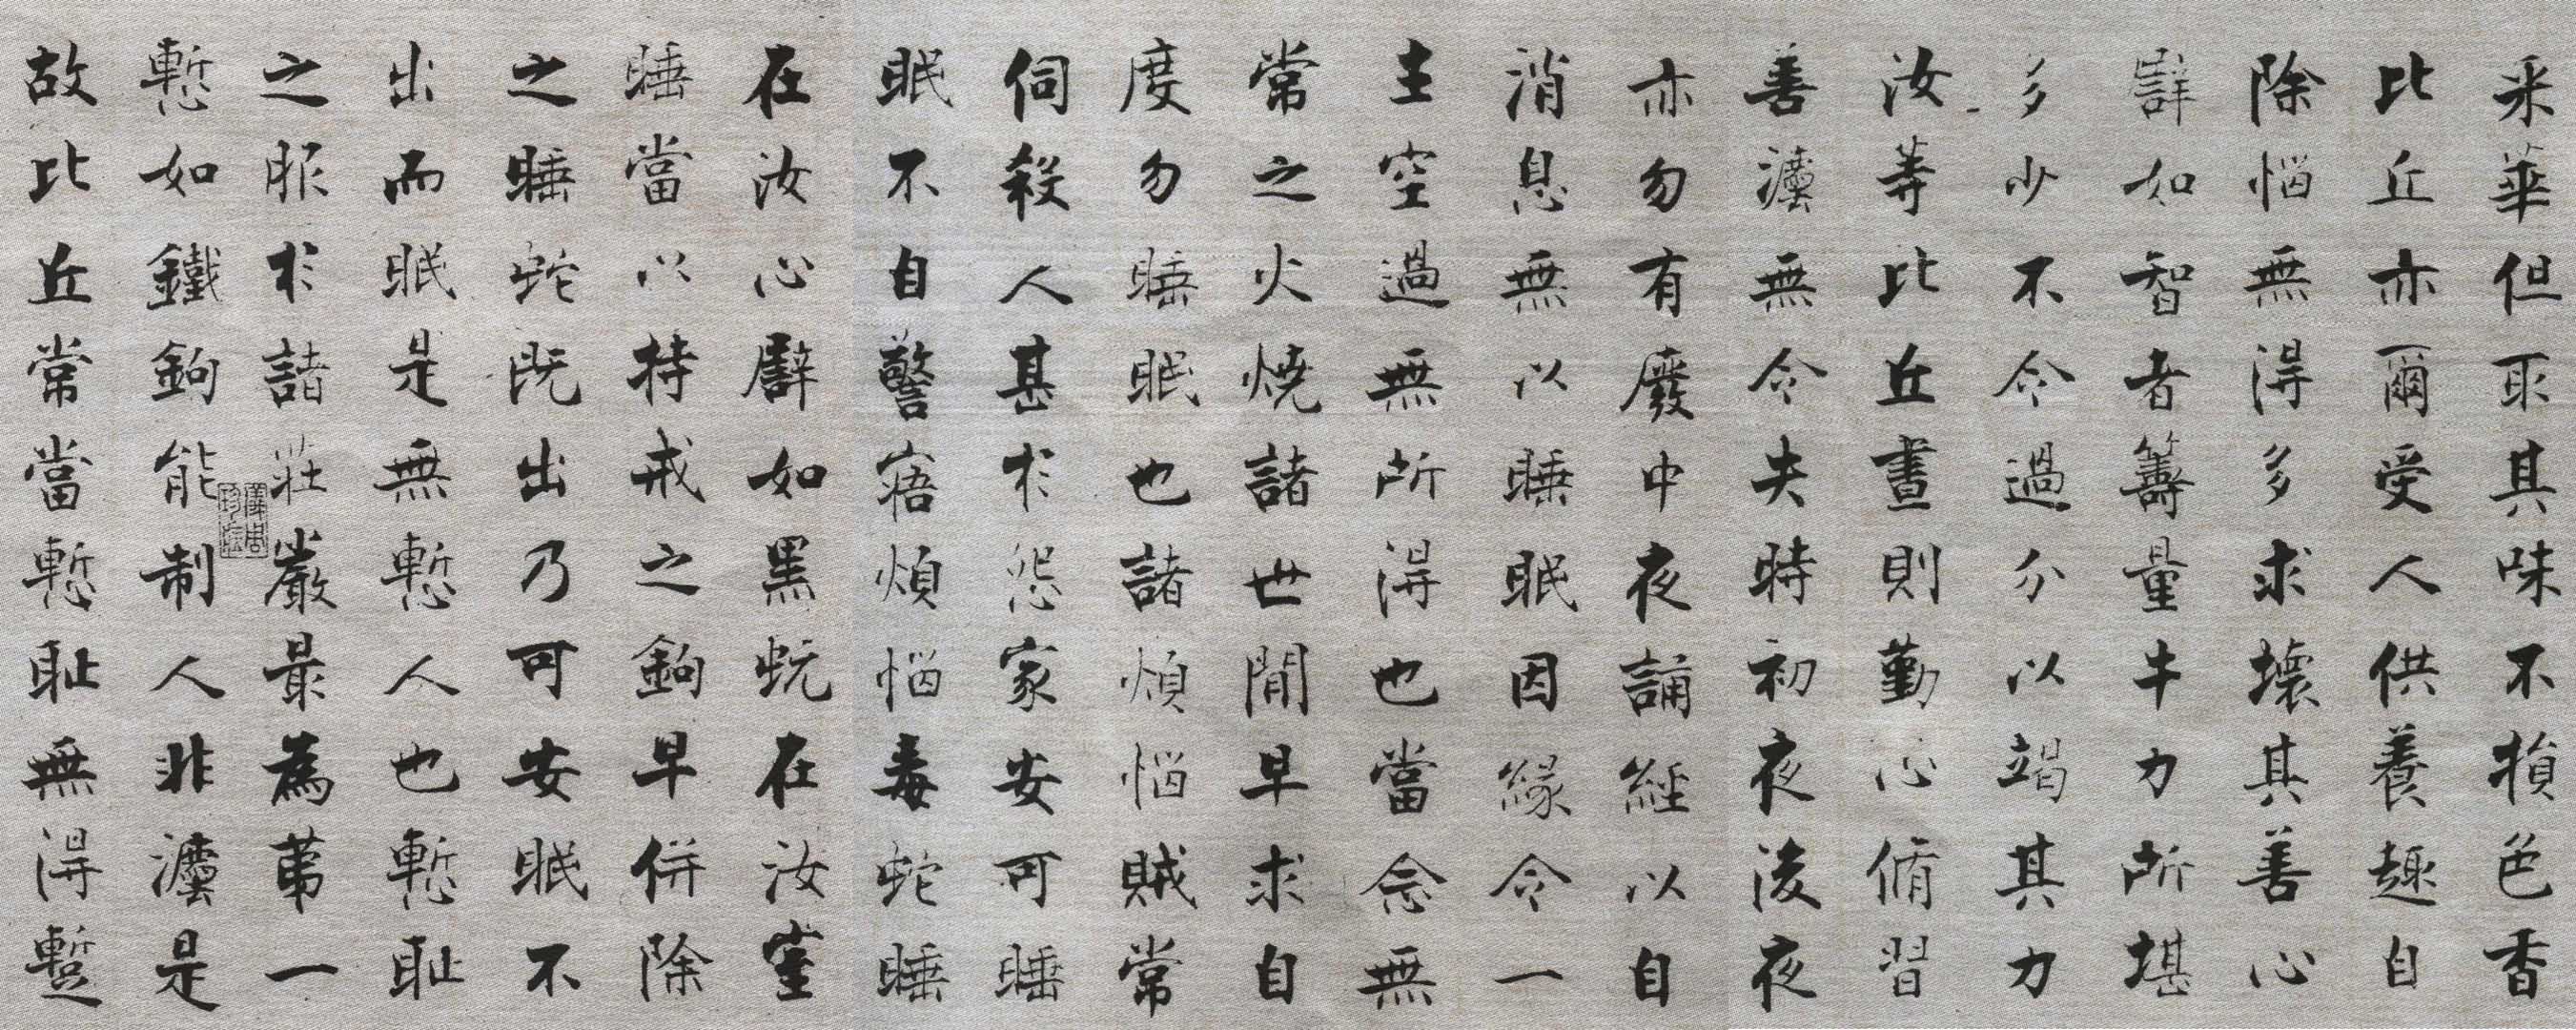 采華但取其味不損色香
比丘亦爾受人供養趣自
除惱無得多求壞其善心
譬如智者籌量牛力所堪
多少不令過分以竭其力
汝等比丘晝則勤心脩習
善法無令失時初夜後夜
亦勿有廢中夜誦經以自
消息無以睡眠因緣令一
主空過無所得也當念無
常之火燒諸世間早求自
度勿睡眠也諸煩惱賊常
伺殺人甚於怨家安可睡
眠不自警寤煩惱毒蛇睡
在汝心譬如黑蚖在汝室
睡當以持戒之鉤早併除
之睡蛇既出乃可安眠不
出而眠是無慙人也慙耻
之服於諸莊嚴最為苐一
慙如鐵鉤能制人非灋是
故比丘常當慙耻無得蹔